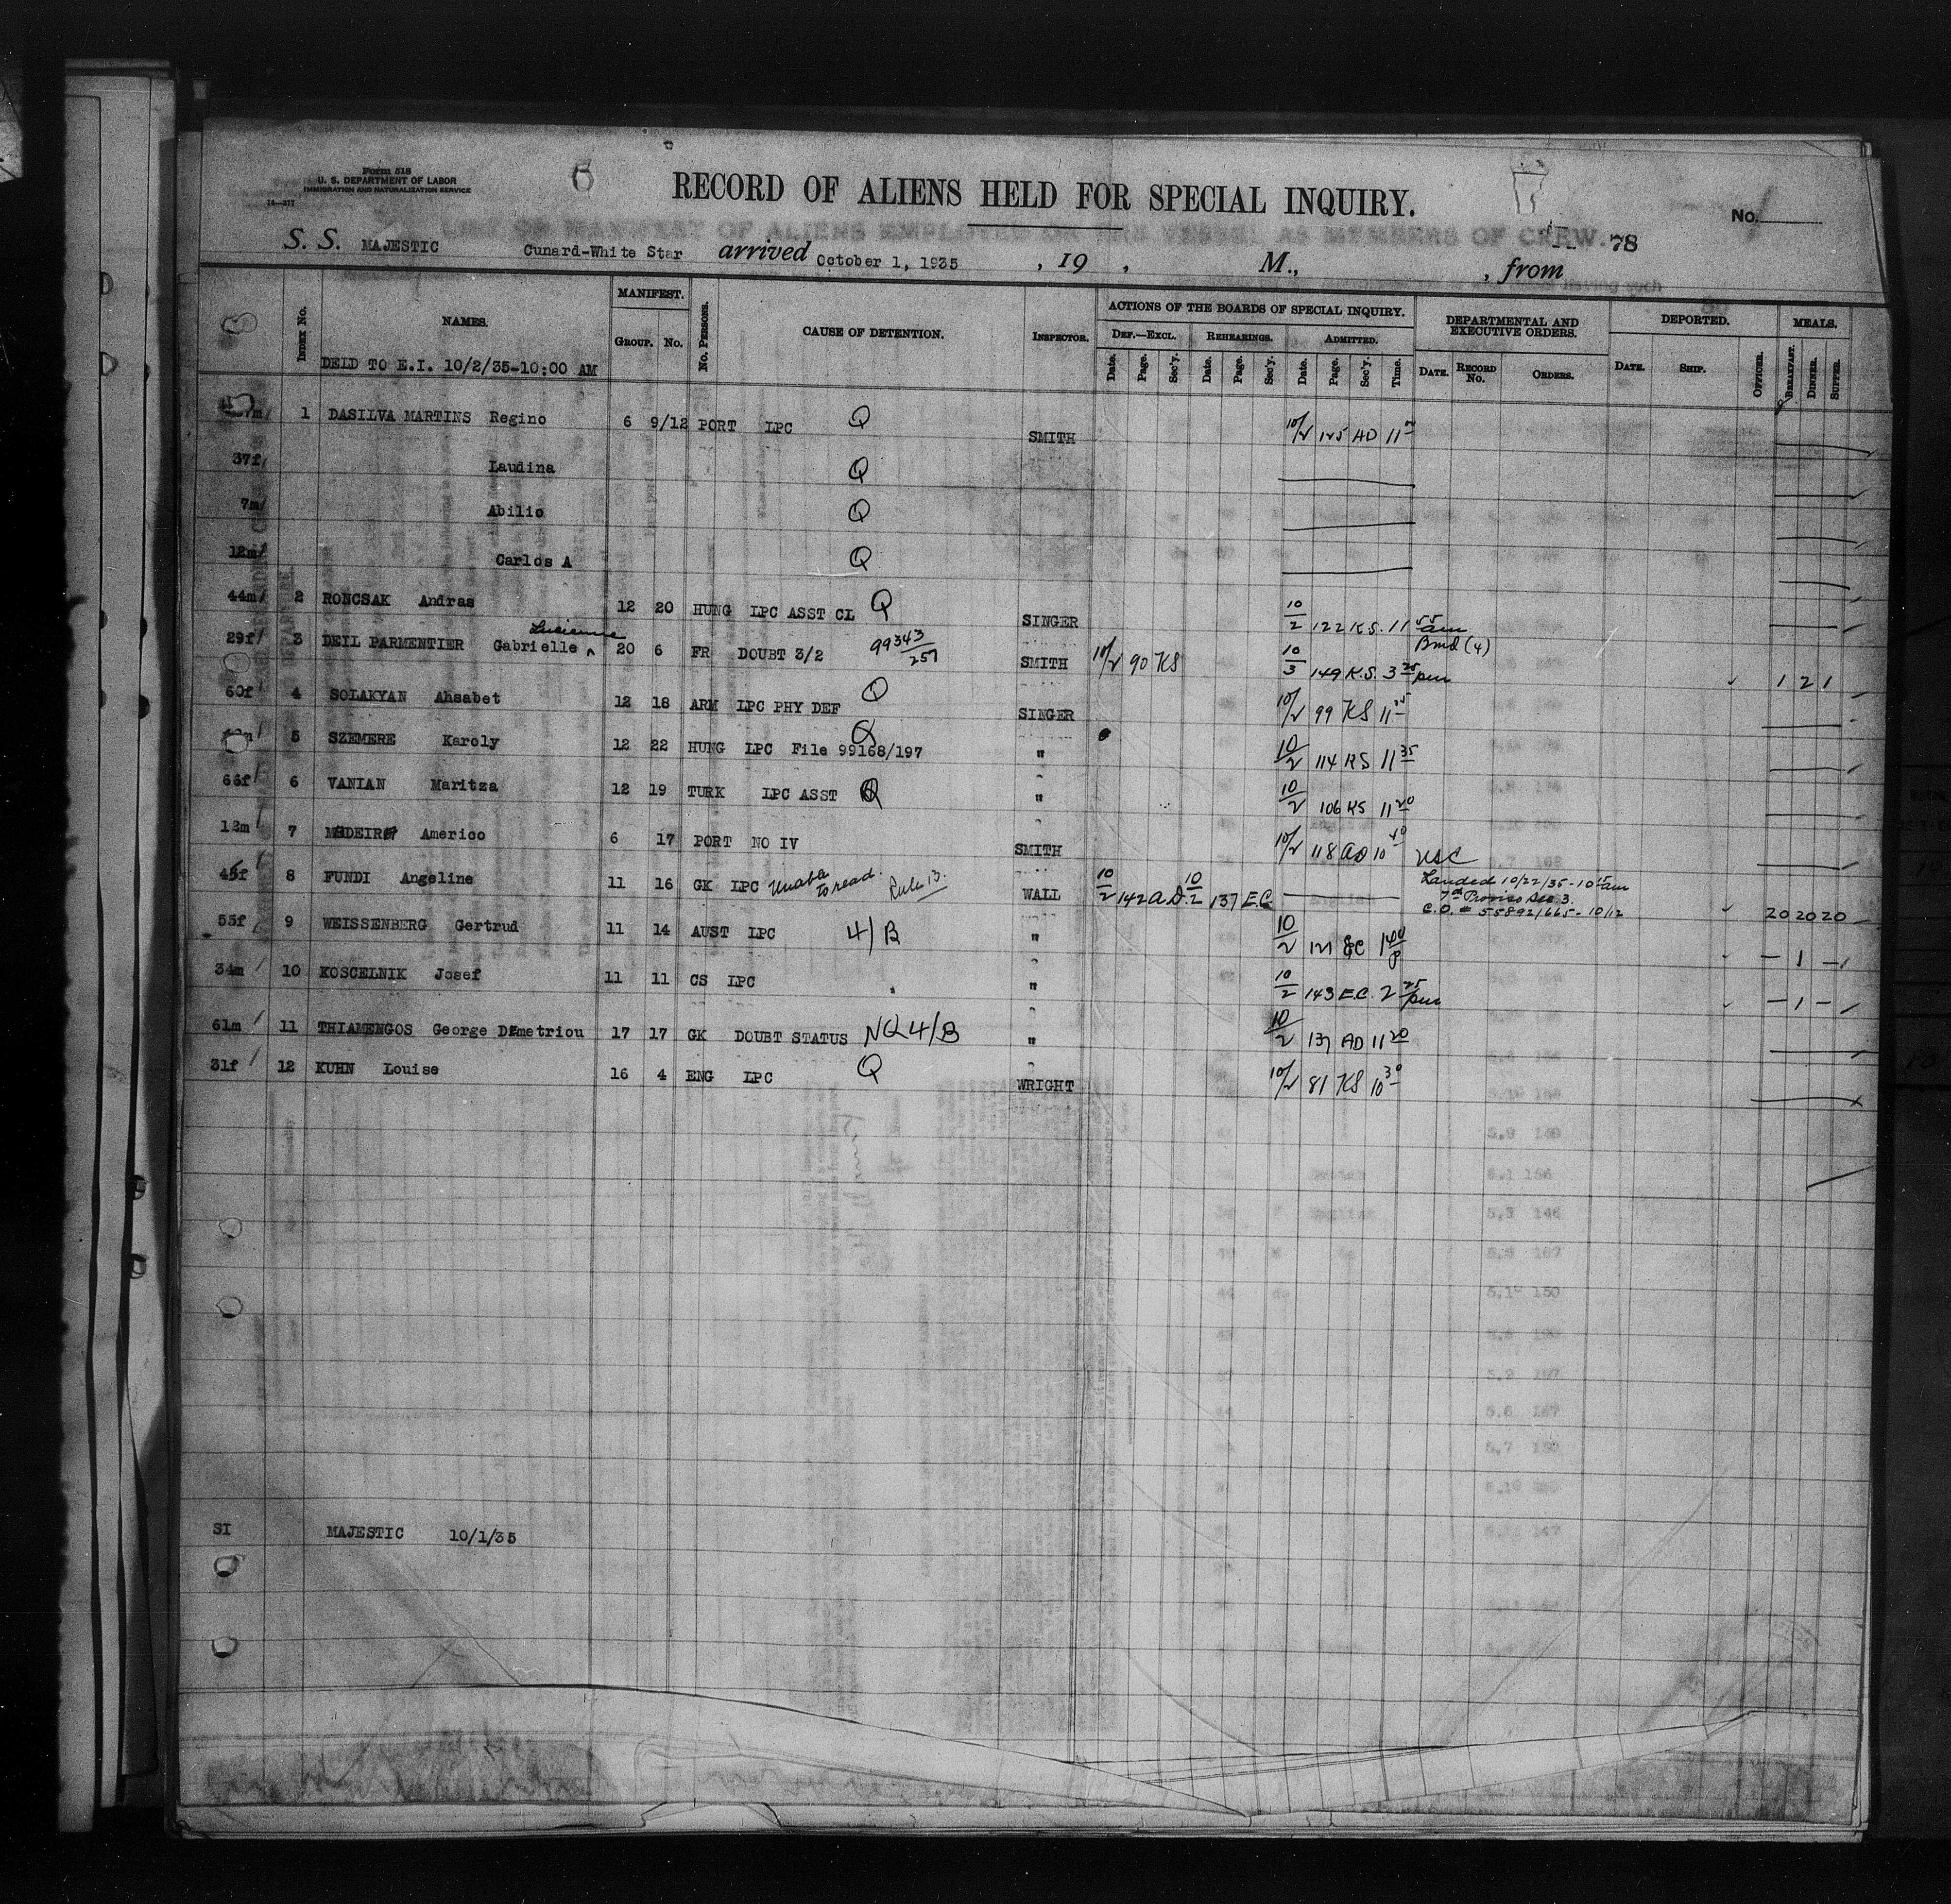 Form 518
U. S. DEPARTMENT OF LABOR
IMMIGRATION AND NATURALIZATION SERVICE
14—377
B
RECORD OF ALIENS HELD FOR SPECIAL INQUIRY.
No.
LIST OR MANIFEST OF ALIENS EMPLOYED ON THE VESSEL AS MEMBERS OF CREW.
78
S. S. MAJESTIC Cunard-White Star arrived October 1, 1935, 19 , M., , from
INDEX No. NAMES. MANIFEST. GROUP. No. No. PERSONS. CAUSE OF DETENTION. INSPECTOR. ACTIONS OF THE BOARDS OF SPECIAL INQUIRY. DEF.—EXCL. REHEARINGS. ADMITTED. DEPARTMENTAL AND EXECUTIVE ORDERS. DEPORTED. MEALS.
Date. Page. Sec'y. Date. Page. Sec'y. Date. Page. Sec'y. Time. DATE. RECORD No. ORDERS. DATE. SHIP. OFFICER. BREAKFAST. DINNER. SUPPER.
DELD TO E.I. 10/2/35-10:00 AM
1 DASILVA MARTINS Regino 6 9/12 PORT LPC Q SMITH 10/2 125 AD 11
37f Laudina Q
7m Abilio Q
12m Carlos A Q
44m 2 RONCSAK Andras 12 20 HUNG LPC ASST CL Q SINGER 10/2 122 KS. 11 55 am
29f 3 DEIL PARMENTIER Gabrielle Lucienne 20 6 FR DOUBT 3/2 99343/257 SMITH 10/2 90 KS 10/3 149 K.S. 3 25 pm Bmd (4) 1 2 1
60f 4 SOLAKYAN Ahsabet 12 18 ARM LPC PHY DEF Q SINGER 10/2 99 KS 11
5 SZEMERE Karoly 12 22 HUNG LPC File 99168/197 Q " 10/2 114 KS 11 35
66f 6 VANIAN Maritza 12 19 TURK LPC ASST Q " 10/2 106 KS 11 20
12m 7 MADEIRA Americo 6 17 PORT NO IV SMITH 10/2 118 AD 10 40 USC
45f 8 FUNDI Angeline 11 16 GK LPC Unable to read. Rule 13. WALL 10/2 142 A.D. 10/2 137 E.C. Landed 10/22/35-10 15 am
7th Proviso Sec. 3.
C.O. # 55892/665-10/12 20 20 20
55f 9 WEISSENBERG Gertrud 11 14 AUST LPC 4/B " 10/2 121 EC 1 40 P — 1 —
34m 10 KOSCELNIK Josef 11 11 CS LPC " 10/2 143 E.C. 2 25 pm — 1 —
61m 11 THIAMENGOS George Demetriou 17 17 GK DOUBT STATUS NQ 4/B " 10/2 137 AD 11 20
31f 12 KUHN Louise 16 4 ENG LPC Q WRIGHT 10/2 81 KS 10 30
SI MAJESTIC 10/1/35